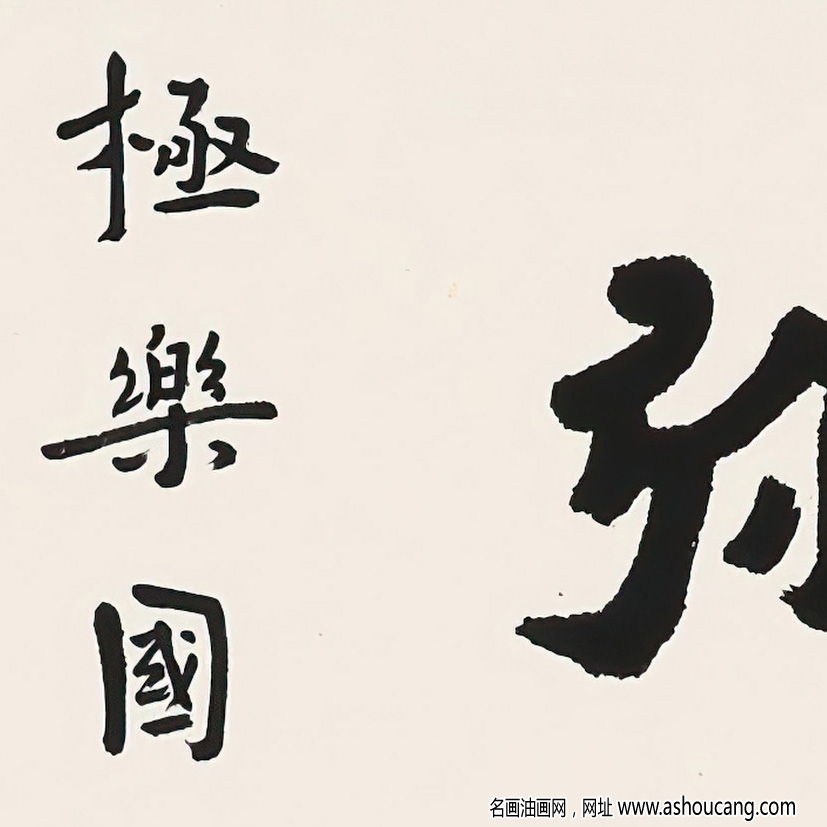 極樂國
名画油画网，网址 www.ashoucang.com